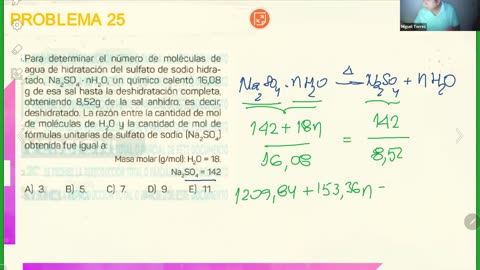 PROBLEMA 25
Miguel Torres
Para determinar el número de moléculas de
agua de hidratación del sulfato de sodio hidra-
tado, Na₂SO₄ · nH₂O, un químico calentó 16,08
g de esa sal hasta la deshidratación completa,
obteniendo 8,52g de la sal anhidro, es decir,
deshidratado. La razón entre la cantidad de mol
de moléculas de H₂O y la cantidad de mol de
fórmulas unitarias de sulfato de sodio (Na₂SO₄)
obtenida fue igual a:
Masa molar (g/mol): H₂O = 18.
Na₂SO₄ = 142
A) 3. B) 5. C) 7. D) 9. E) 11.
Na₂SO₄ · nH₂O —Δ→ Na₂SO₄ + nH₂O
142 + 18n = 142
16,08 8,52
1209,84 + 153,36n =